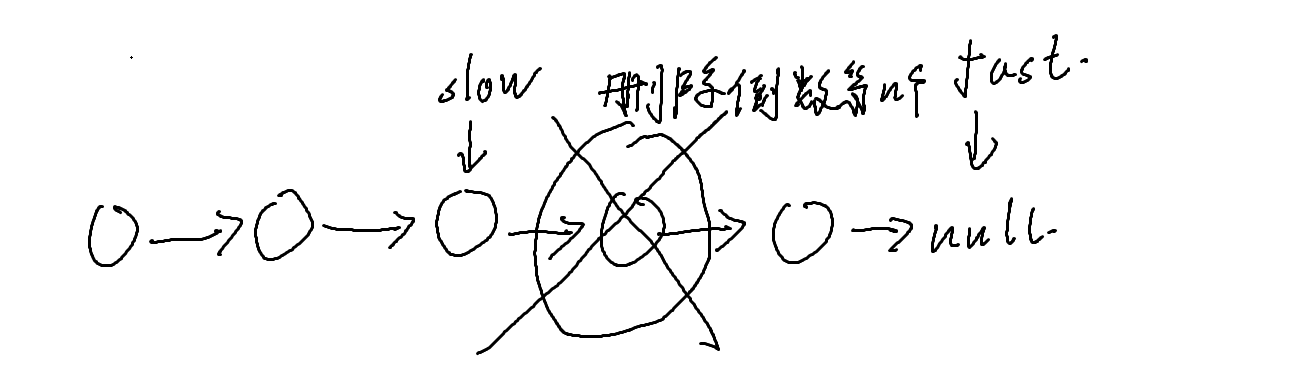 slow 删除倒数第n个 fast.
null.